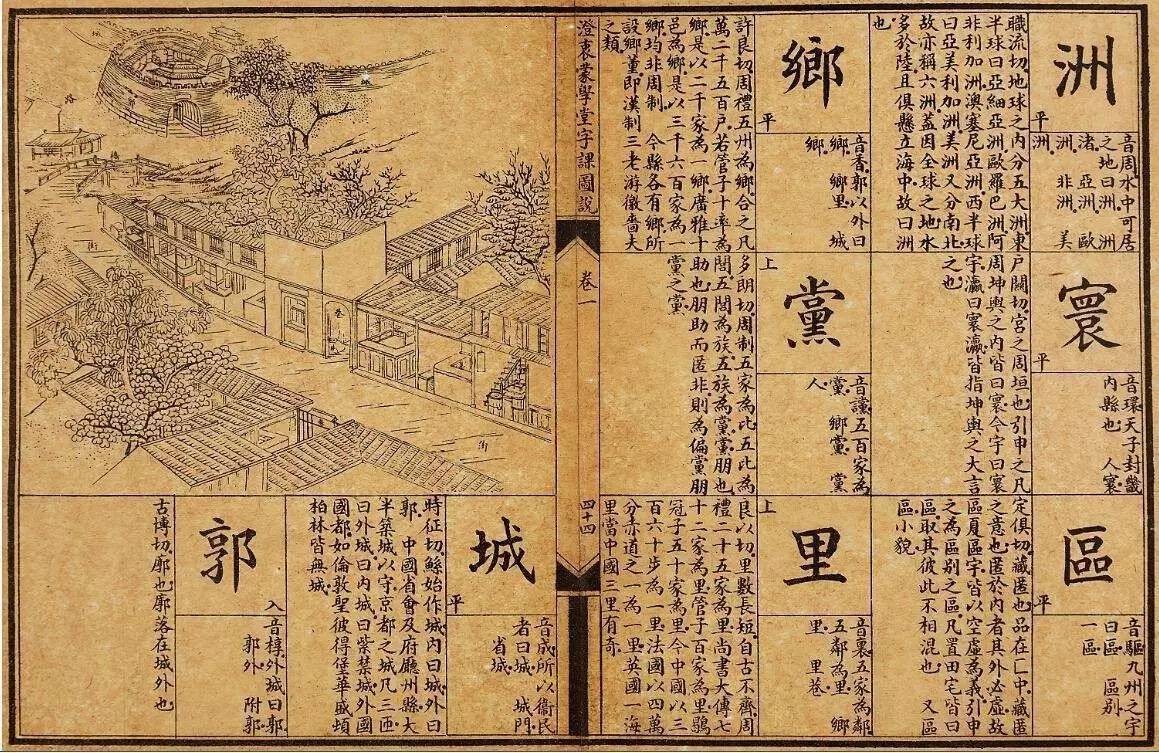 洲
平
音周水中可居
之地曰洲　洲
渚　亞洲　歐
洲　非洲　美
洲
職流切地球之內分五大洲東
半球曰亞細亞洲歐羅巴洲阿
非利加洲澳塞尼亞洲西半球
曰亞美利加洲美洲又分南北
故亦稱六洲蓋因全球之地水
多於陸且俱懸立海中故曰洲
也
寰
平
音環天子封畿
內縣也　人寰
戶關切宮之周垣也引申之凡
周坤輿之內皆曰寰今宇曰寰
宇瀛曰寰瀛皆指坤輿之大言
之也
區
平
音驅九州之宇
曰區　區別
一區
定俱切藏匿也品在匸中藏匿
之意也匿於內者其外必虛故
區夏區宇皆以空虛為義引申
之為區別之區凡置田宅皆曰
區取其彼此不相混也　又區
區小貌
鄉
平
音香郭以外曰
鄉　鄉里　城
鄉
許良切周禮五州為鄉合之凡
萬二千五百戶若管子十率為
鄉是以二千家為一鄉廣雅十
邑為鄉是以三千六百家為一
鄉均非周制　今縣各有鄉所
設鄉董即漢制三老游徼嗇夫
之類
黨
上
音讜五百家為
黨　鄉黨　黨
人
多朗切周制五家為比五比為
閭五閭為族五族為黨黨朋也
助也朋助而匿非則為偏黨朋
黨之黨
里
上
音裏五家為鄰
五鄰為里　鄉
里　里巷
良以切里數長短自古不齊周
禮二十五家為里尚書大傳七
十二家為里管子百家為里鶡
冠子五十家為里今中國以三
百六十步為一里法國以四萬
分赤道之一為一里英國一海
里當中國三里有奇
澄衷蒙學堂字課圖說
卷一
四十四
城
郭
路
街
巷
街
城
平
音成所以衞民
者曰城　城門
省城
時征切鯀始作城內曰城外曰
郭　中國省會及府廳州縣大
半築城以守京都之城凡三匝
曰外城曰內城曰紫禁城外國
國都如倫敦聖彼得堡華盛頓
柏林皆無城
郭
入
音椁外城曰郭
郭外　附郭
古博切廓也廓落在城外也